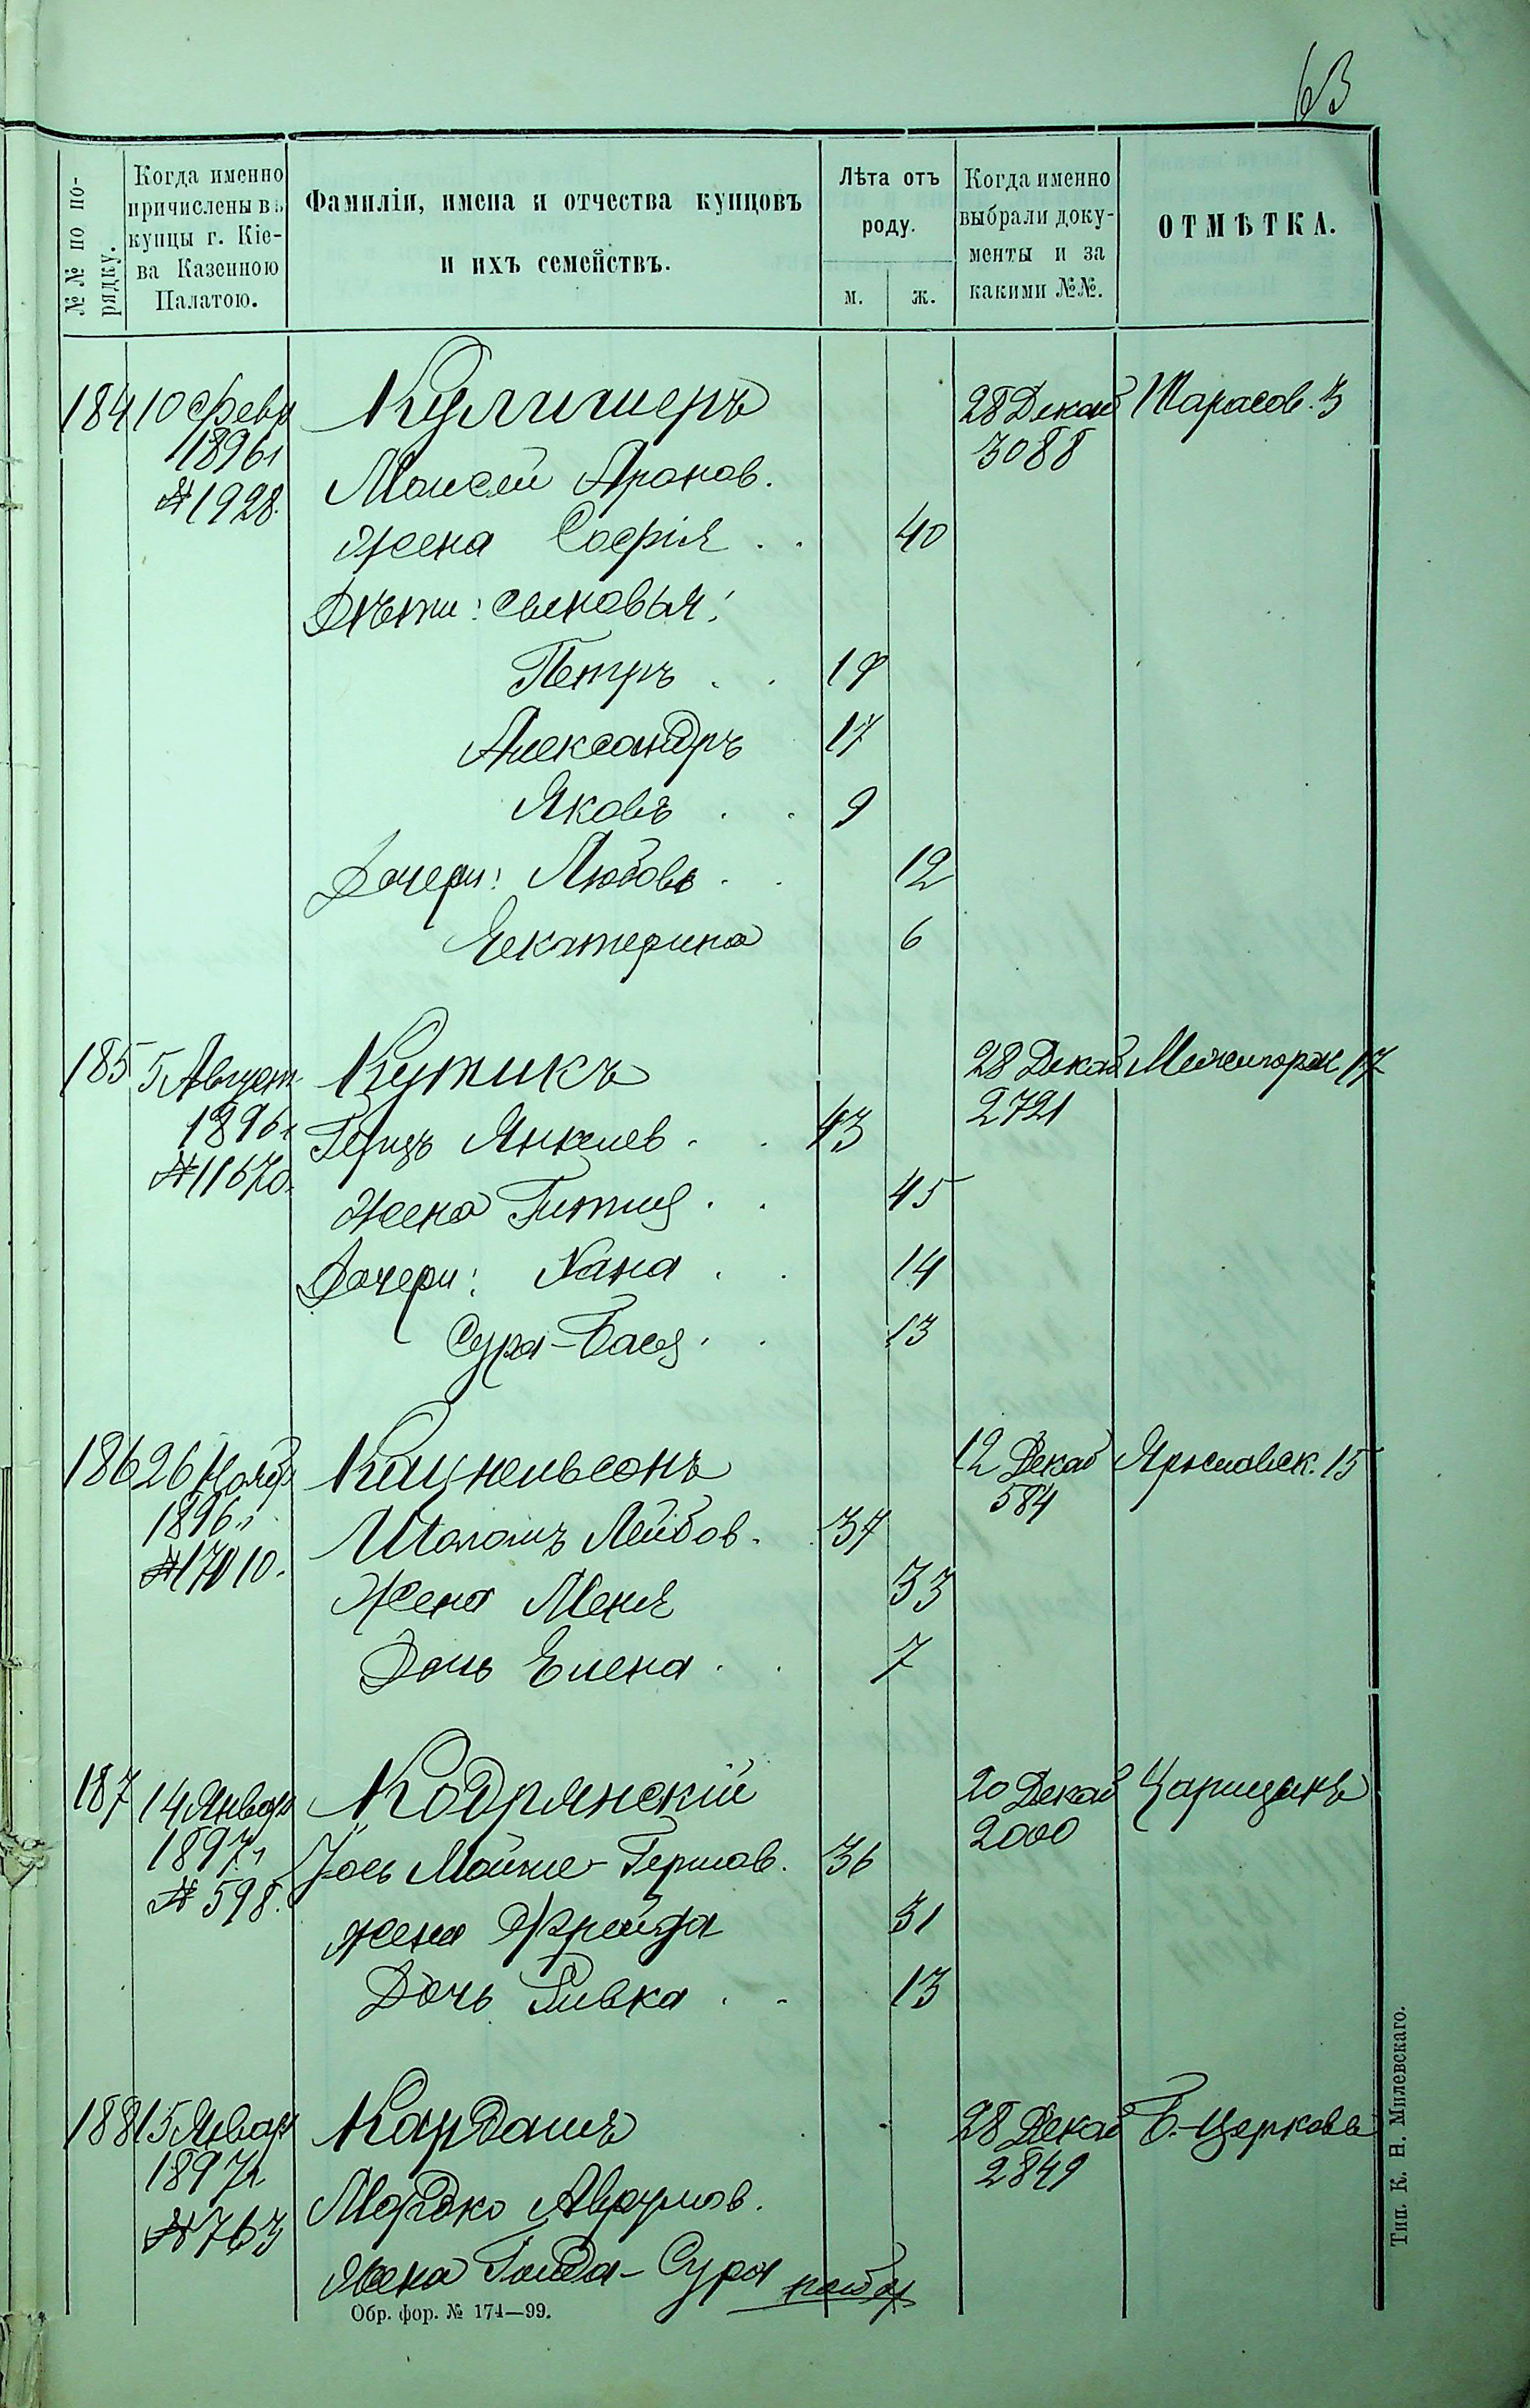 63
№№ по по-
рядку.
Когда именно
причислены въ
купцы г. Кіе-
ва Казенною
Палатою.
Фамиліи, имена и отчества купцовъ
и ихъ семействъ.
Лѣта отъ
роду.
м.
ж.
Когда именно
выбрали доку-
менты и за
какими №№.
ОТМѢТКА.
184 10 Февр Кулишеръ 28 Декаб Тарасов. 3
1896 г 3088
№ 1928. Моисей Аронов.
Жена Софія . . 40
Дѣти: сыновья:
Петръ . . 19
Александръ 17
Яковъ . . 9
Дочери: Любовь . . 12
Екатерина 6
185 5 Август Кутикъ 28 Декаб Межигорск 17
1896 г Герцъ Янкелев . . 43 2721
№ 11670. Жена Гитля . . 45
Дочери: Хана . . 14
Сура-Бася . . 13
186 26 Нояб Кацнельсонъ 12 Декаб Ярославск. 15
1896 г. 584
№ 17010. Шоломъ Лейбов. 37
Жена Меня 33
Дочь Елена . . 7
187 14 Январ Кодрянскій 20 Декаб Царицынъ
1897 г Іось Мойше-Гершов. 36 2000
№ 598. жена Фрейда 31
Дочь Ривка . . 13
188 15 Январ Кардашъ 28 Декаб Б.-Церковь
1897 г. 2849
№ 763 Мордко Аврумов.
Жена Голда-Сура
Обр. фор. № 174—99.
Тип. К. Н. Милевскаго.